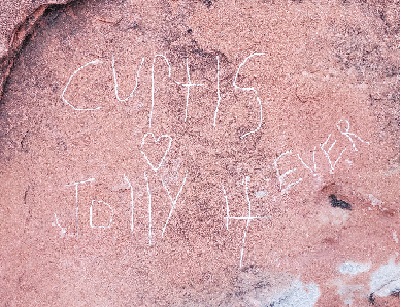 CURtIS
♡
Jolly 4 EVER